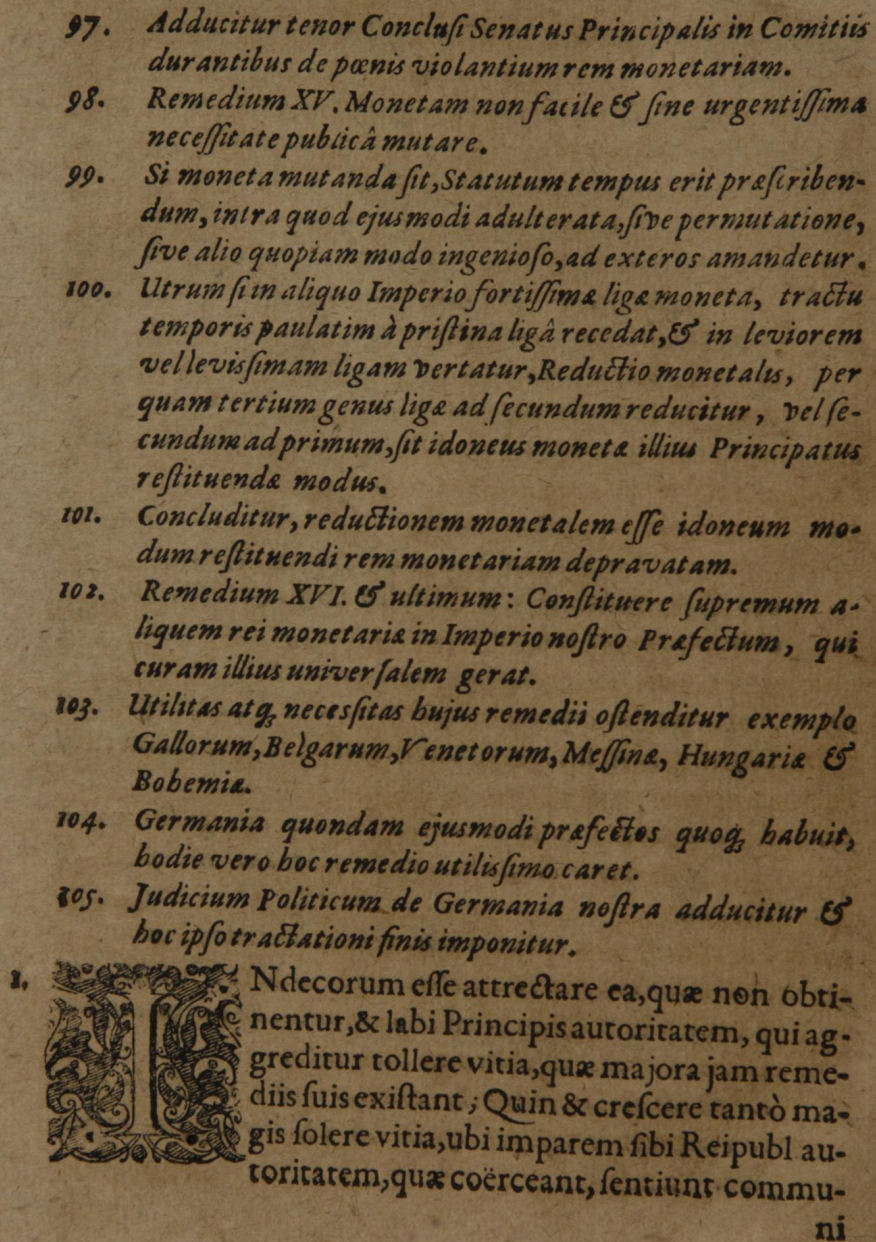 97. Adducitur tenor Conclusi Senatus Principalis in Comitiis
durantibus de pœnis violantium rem monetariam.
98. Remedium XV. Monetam non facile & sine urgentissima
necessitate publicâ mutare.
99. Si moneta mutanda sit, Statutum tempus erit præscriben-
dum, intra quod ejusmodi adulterata, sive permutatione,
sive alio quopiam modo ingenioso, ad exteros amandetur.
100. Utrum si in aliquo Imperio fortissimæ ligæ moneta, tractu
temporis paulatim à pristina ligâ recedat, & in leviorem
vel levissimam ligam vertatur, Reductio monetalis, per
quam tertium genus ligæ ad secundum reducitur, vel se-
cundum ad primum, sit idoneus monetæ illius Principatus
restituendæ modus.
101. Concluditur, reductionem monetalem esse idoneum mo-
dum restituendi rem monetariam depravatam.
102. Remedium XVI. & ultimum: Constituere supremum a-
liquem rei monetariæ in Imperio nostro Præfectum, qui
curam illius universalem gerat.
103. Utilitas atq; necessitas hujus remedii ostenditur exemplo
Gallorum, Belgarum, Venetorum, Messinæ, Hungariæ &
Bohemiæ.
104. Germania quondam ejusmodi præfectos quoq; habuit,
hodie vero hoc remedio utilissimo caret.
105. Judicium Politicum de Germania nostra adducitur &
hoc ipso tractationi finis imponitur.
1, INdecorum esse attrectare ea, quæ non obti-
nentur, & labi Principis autoritatem, qui ag-
greditur tollere vitia, quæ majora jam reme-
diis suis existant; Quin & crescere tantò ma-
gis solere vitia, ubi imparem sibi Reipubl au-
toritatem, quæ coërceant, sentiunt commu-
ni